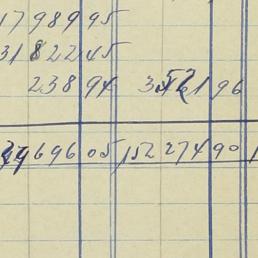 17989 95
31822 45
238 94
196
696 05 152 274 90